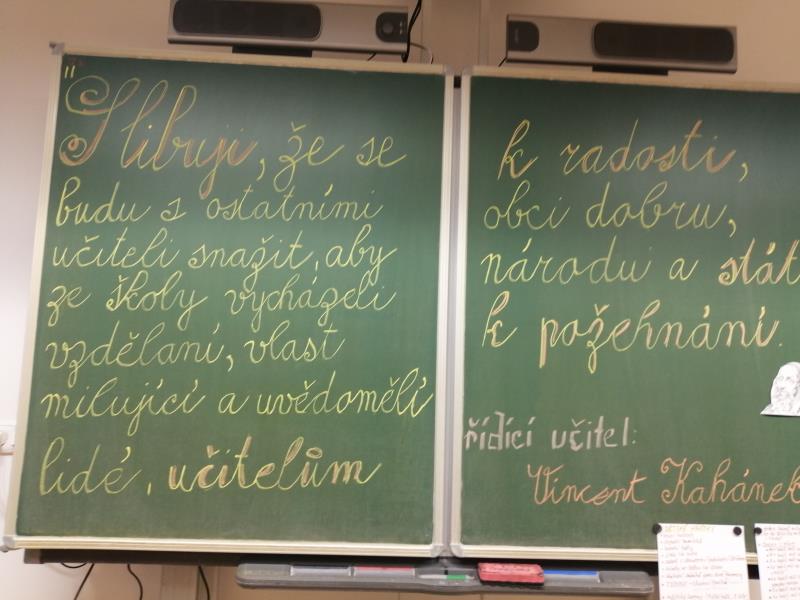 "Slibuji, že se
budu s ostatními
učiteli snažit, aby
ze školy vycházeli
vzdělaní, vlast
milující a uvědomělí
lidé, učitelům
k radosti,
obci dobru,
národu a stát
k požehnání.
řídící učitel:
Vincent Kahánek